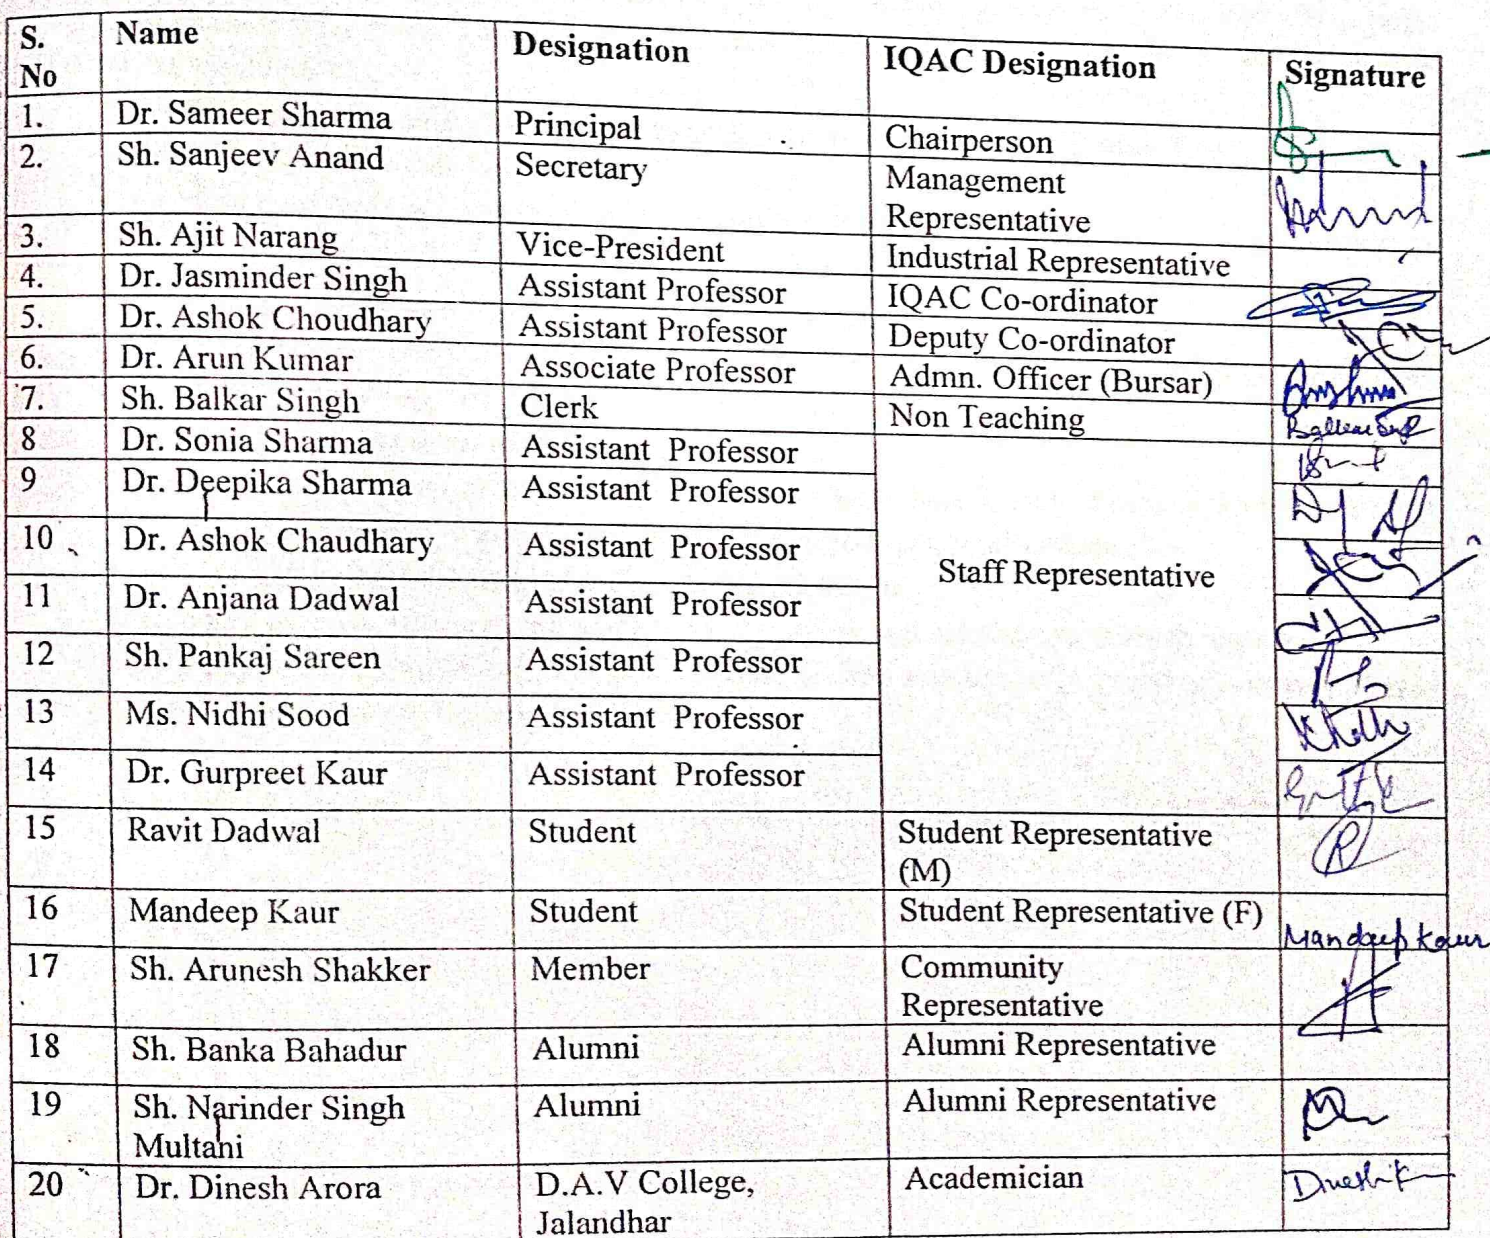 S. No Name Designation IQAC Designation Signature
1. Dr. Sameer Sharma Principal Chairperson
2. Sh. Sanjeev Anand Secretary Management
Representative
3. Sh. Ajit Narang Vice-President Industrial Representative
4. Dr. Jasminder Singh Assistant Professor IQAC Co-ordinator
5. Dr. Ashok Choudhary Assistant Professor Deputy Co-ordinator
6. Dr. Arun Kumar Associate Professor Admn. Officer (Bursar)
7. Sh. Balkar Singh Clerk Non Teaching
8 Dr. Sonia Sharma Assistant Professor
9 Dr. Deepika Sharma Assistant Professor
10 Dr. Ashok Chaudhary Assistant Professor
Staff Representative
11 Dr. Anjana Dadwal Assistant Professor
12 Sh. Pankaj Sareen Assistant Professor
13 Ms. Nidhi Sood Assistant Professor
14 Dr. Gurpreet Kaur Assistant Professor
15 Ravit Dadwal Student Student Representative
(M)
16 Mandeep Kaur Student Student Representative (F) Mandeep Kaur
17 Sh. Arunesh Shakker Member Community
Representative
18 Sh. Banka Bahadur Alumni Alumni Representative
19 Sh. Narinder Singh Alumni Alumni Representative
Multani
20 Dr. Dinesh Arora D.A.V College, Academician
Jalandhar